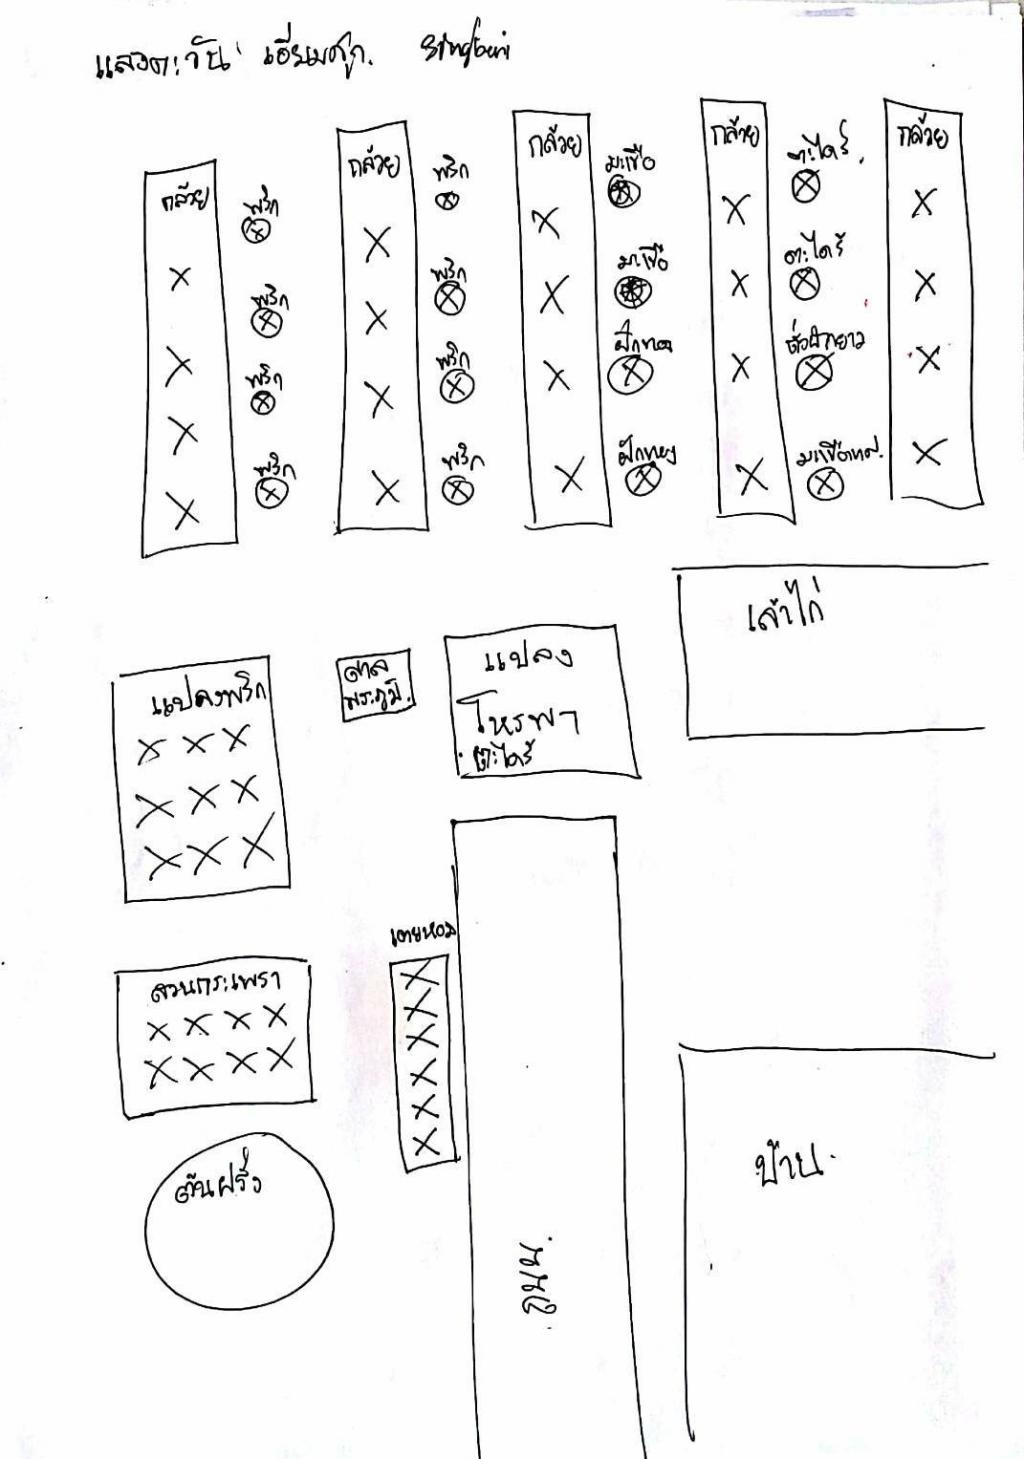 แสงตะวัน เอี่ยมศูก. Singburi
กล้วย
พริก
พริก
พริก
พริก
กล้วย
พริก
พริก
พริก
พริก
กล้วย
มะเขือ
มะเขือ
ฝักทอง
ฝักทอง
กล้วย
ตะไคร้.
ตะไคร้
ถั่วฝักยาว
มะเขือเทศ.
กล้วย
เล้าไก่
แปลงพริก
ศาล
พระภูมิ.
แปลง
โหรพา
ตะไคร้
เตยหอม
สวนกระเพรา
ต้นฝรั่ง
ถนน.
บ้าน.